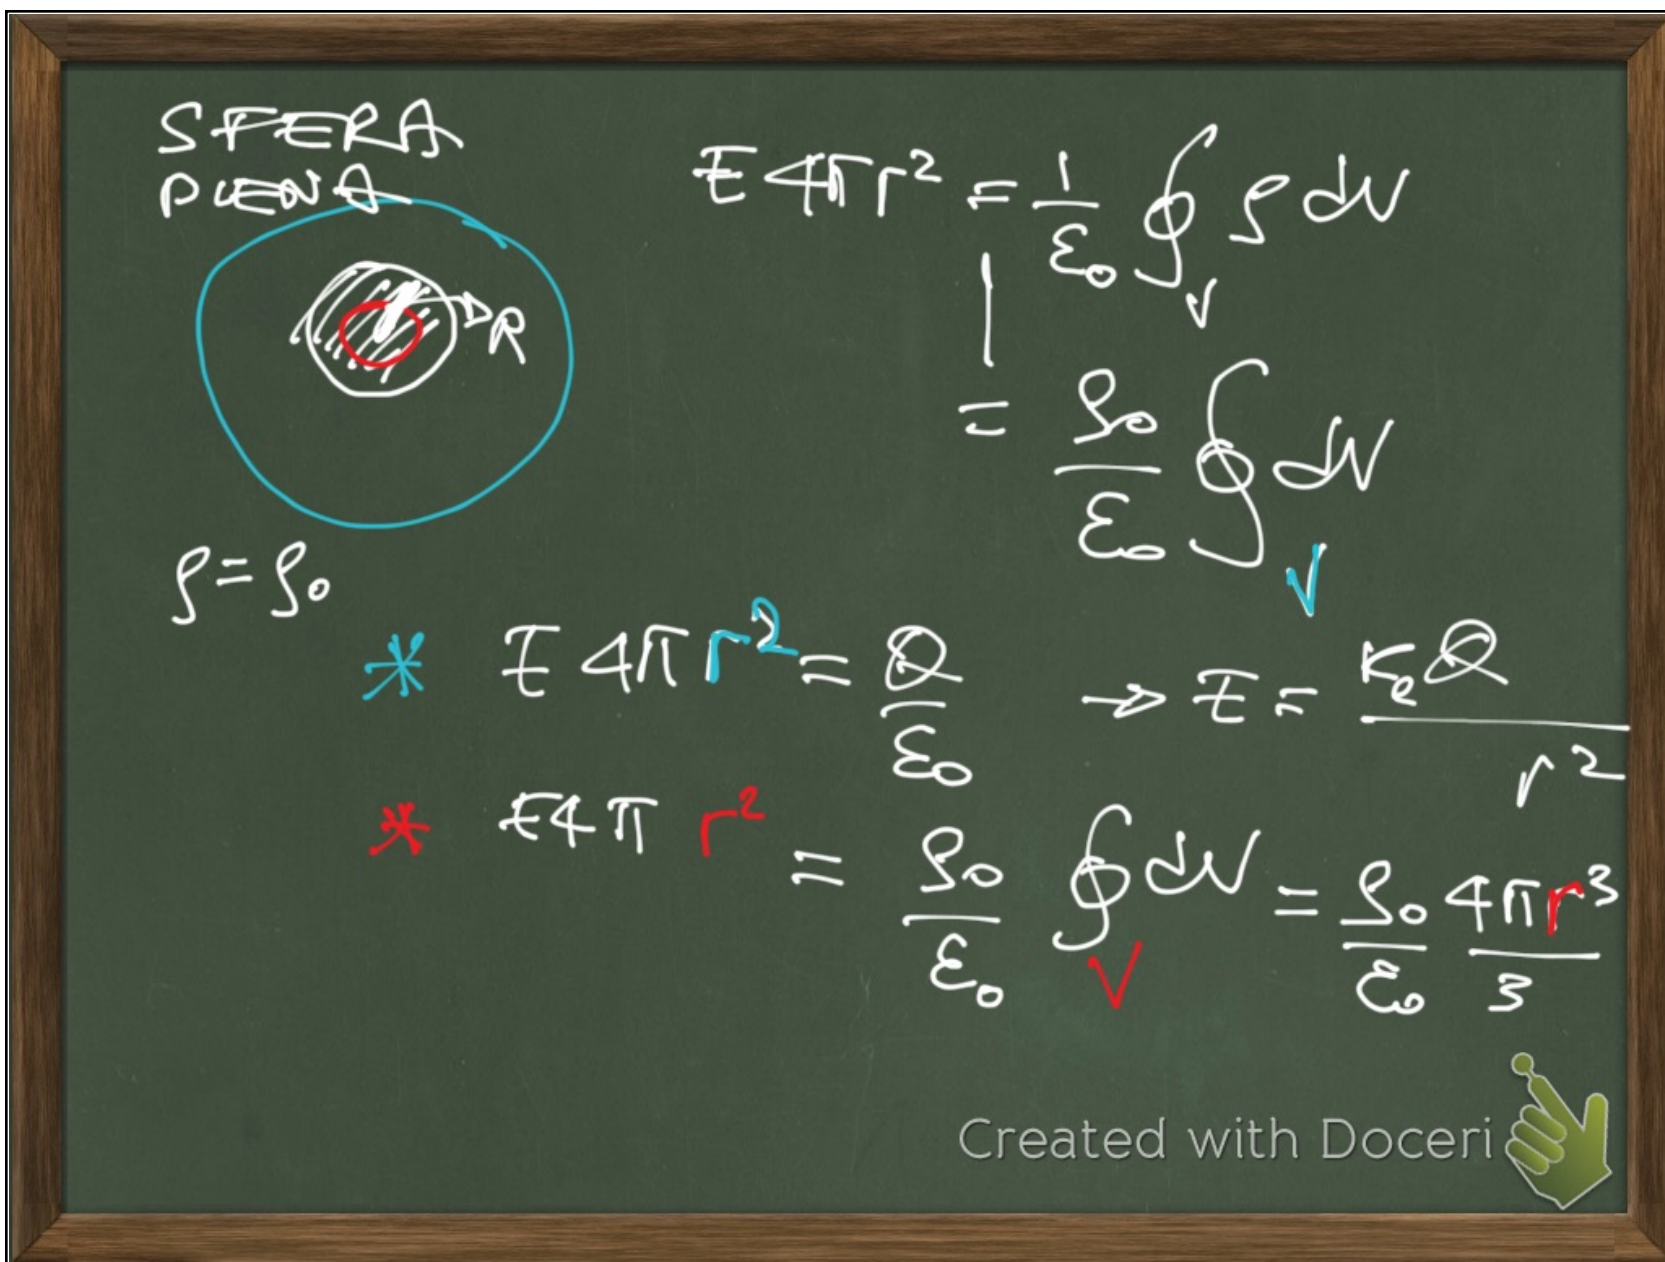 SFERA
PIENA
E 4π r² = 1/ε₀ ∮_V ρ dV
R
= ρ₀/ε₀ ∮_V dV
ρ = ρ₀
* E 4π r² = Q/ε₀ → E = KₑQ/r²
* E4π r² = ρ₀/ε₀ ∮_V dV = ρ₀/ε₀ 4πr³/3
Created with Doceri